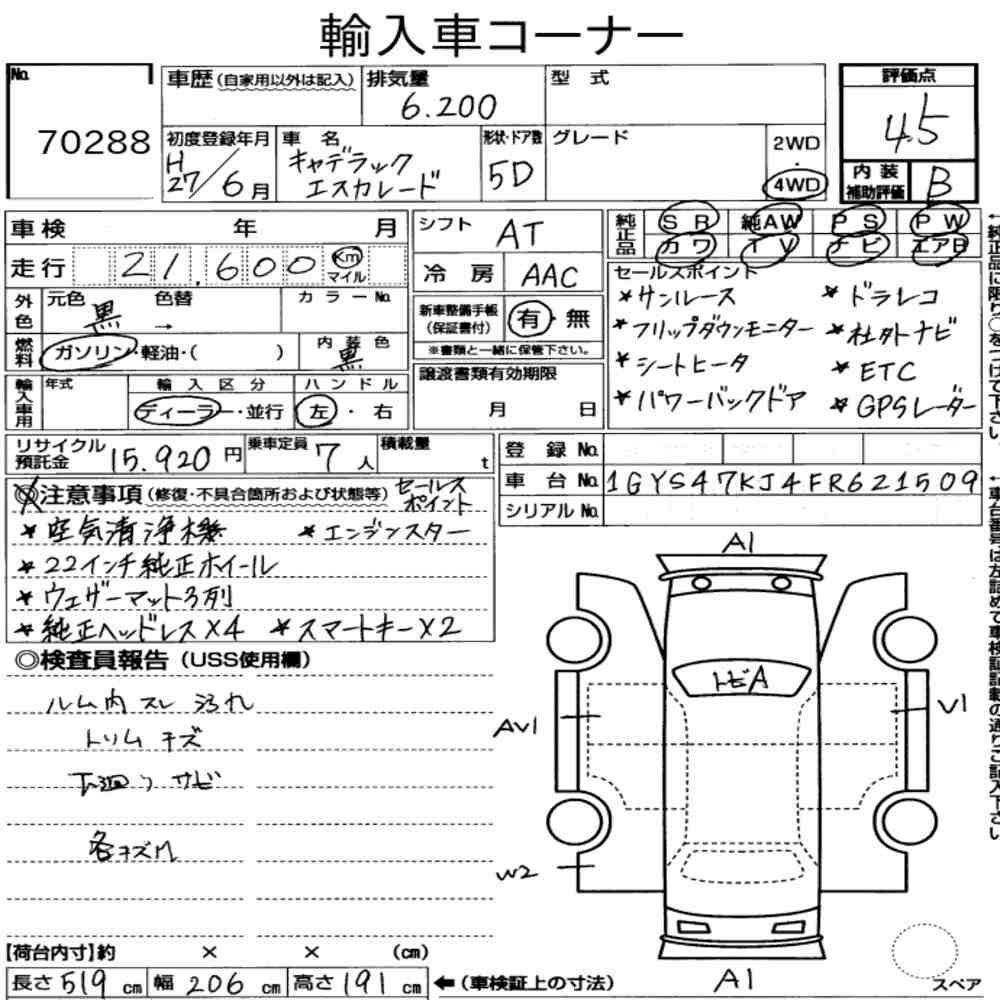 輸入車コーナー
No.
70288
車歴(自家用以外は記入)
排気量
6.200
型式
評価点
4.5
初度登録年月
H27/6月
車名
キャデラック
エスカレード
形状・ドア数
5D
グレード
2WD
・
4WD
内装
補助評価
B
車検 年 月
シフト AT
純正品
SR 純AW PS PW
カワ TV ナビ エアB
走行 21,600 Km マイル
冷房 AAC
セールスポイント
★サンルース ★ドラレコ
★フリップダウンモニター ★社外ナビ
★シートヒータ ★ETC
★パワーバックドア ★GPSレーダー
外色
元色 黒 色替 →
カラーNo.
新車整備手帳
(保証書付)
有・無
※書類と一緒に保管下さい。
燃料
ガソリン・軽油・( )
内装色
黒
輸入車用
年式
輸入区分
ディーラー・並行
ハンドル
左・右
譲渡書類有効期限
月 日
リサイクル
預託金
15.920円
乗車定員
7人
積載量
t
登録No.
車台No. 1GYS47KJ4FR621509
シリアルNo.
◎注意事項(修復・不具合箇所および状態等)セールスポイント
★空気清浄機 ★エンジンスター
★22インチ純正ホイール
★ウェザーマット3列
★純正ヘッドレス×4 ★スマートキー×2
◎検査員報告(USS使用欄)
ルム内 スレ 汚れ
トリム キズ
下廻り サビ
各キズ
A1
トビA
AV1
V1
W2
A1
スペア
【荷台内寸】約 × × (cm)
長さ 519 cm 幅 206 cm 高さ 191 cm ←(車検証上の寸法)
←純正品に限り○をつけて下さい。
←車台番号は左詰めで車検証記載の通りご記入下さい。